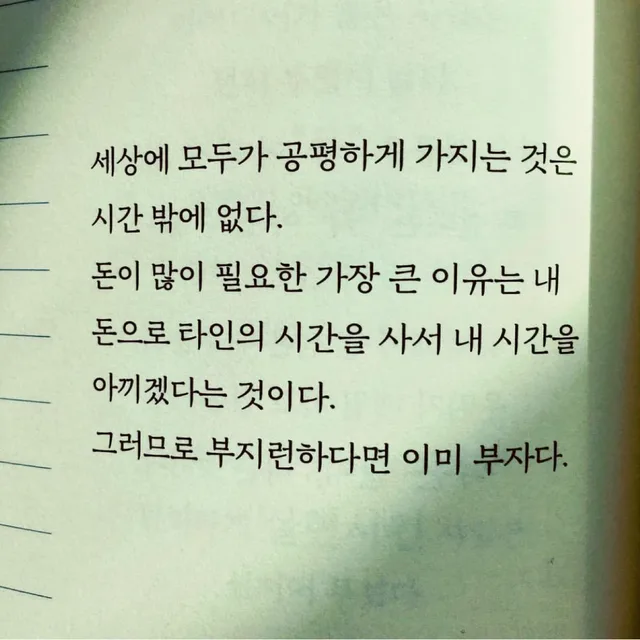 세상에 모두가 공평하게 가지는 것은
시간 밖에 없다.
돈이 많이 필요한 가장 큰 이유는 내
돈으로 타인의 시간을 사서 내 시간을
아끼겠다는 것이다.
그러므로 부지런하다면 이미 부자다.